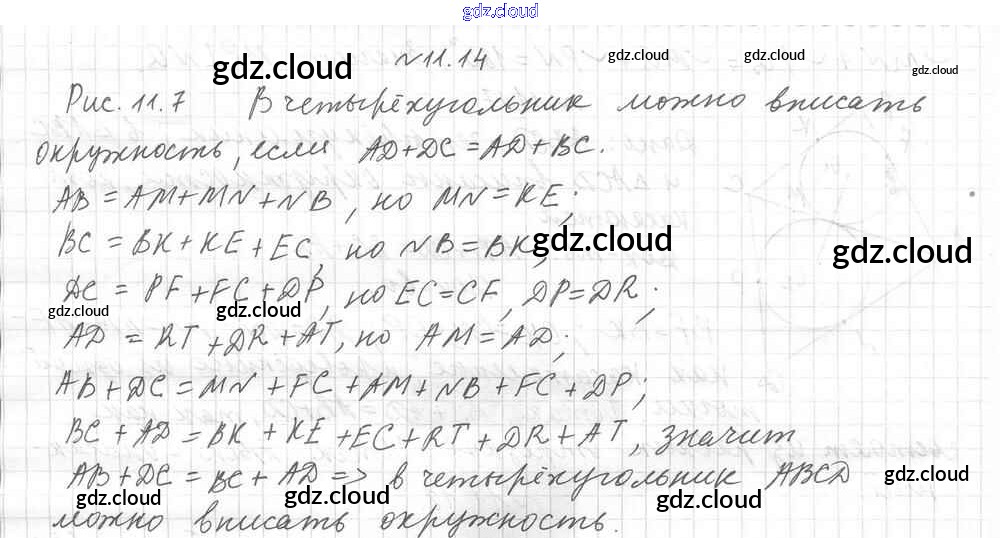 gdz.cloud
№11.14
gdz.cloud gdz.cloud gdz.cloud gdz.cloud
Рис. 11.7 В четырёхугольник можно вписать
окружность, если AD+DC=AD+BC.
AB = AM+MN+NB, но MN=KE;
BC = BK+KE+EC, но NB=BK,
gdz.cloud gdz.cloud
DC = PF+FC+DP, но EC=CF, DP=DR;
gdz.cloud gdz.cloud
AD = RT+DR+AT, но AM=AD;
AB+DC=MN+FC+AM+NB+FC+DP;
BC+AD=BK+KE+EC+RT+DR+AT, значит
AB+DC=BC+AD=> в четырёхугольник ABCD
gdz.cloud gdz.cloud gdz.cloud gdz.cloud
можно вписать окружность.